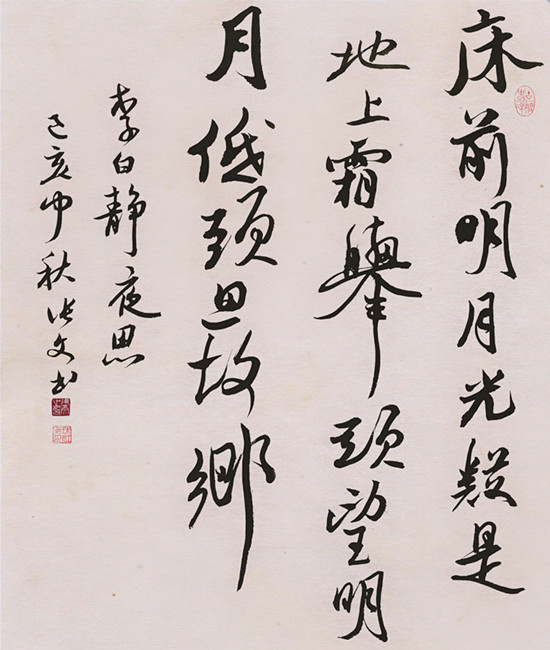 床前明月光疑是
地上霜舉頭望明
月低頭思故鄉
李白静夜思
己亥中秋张文书